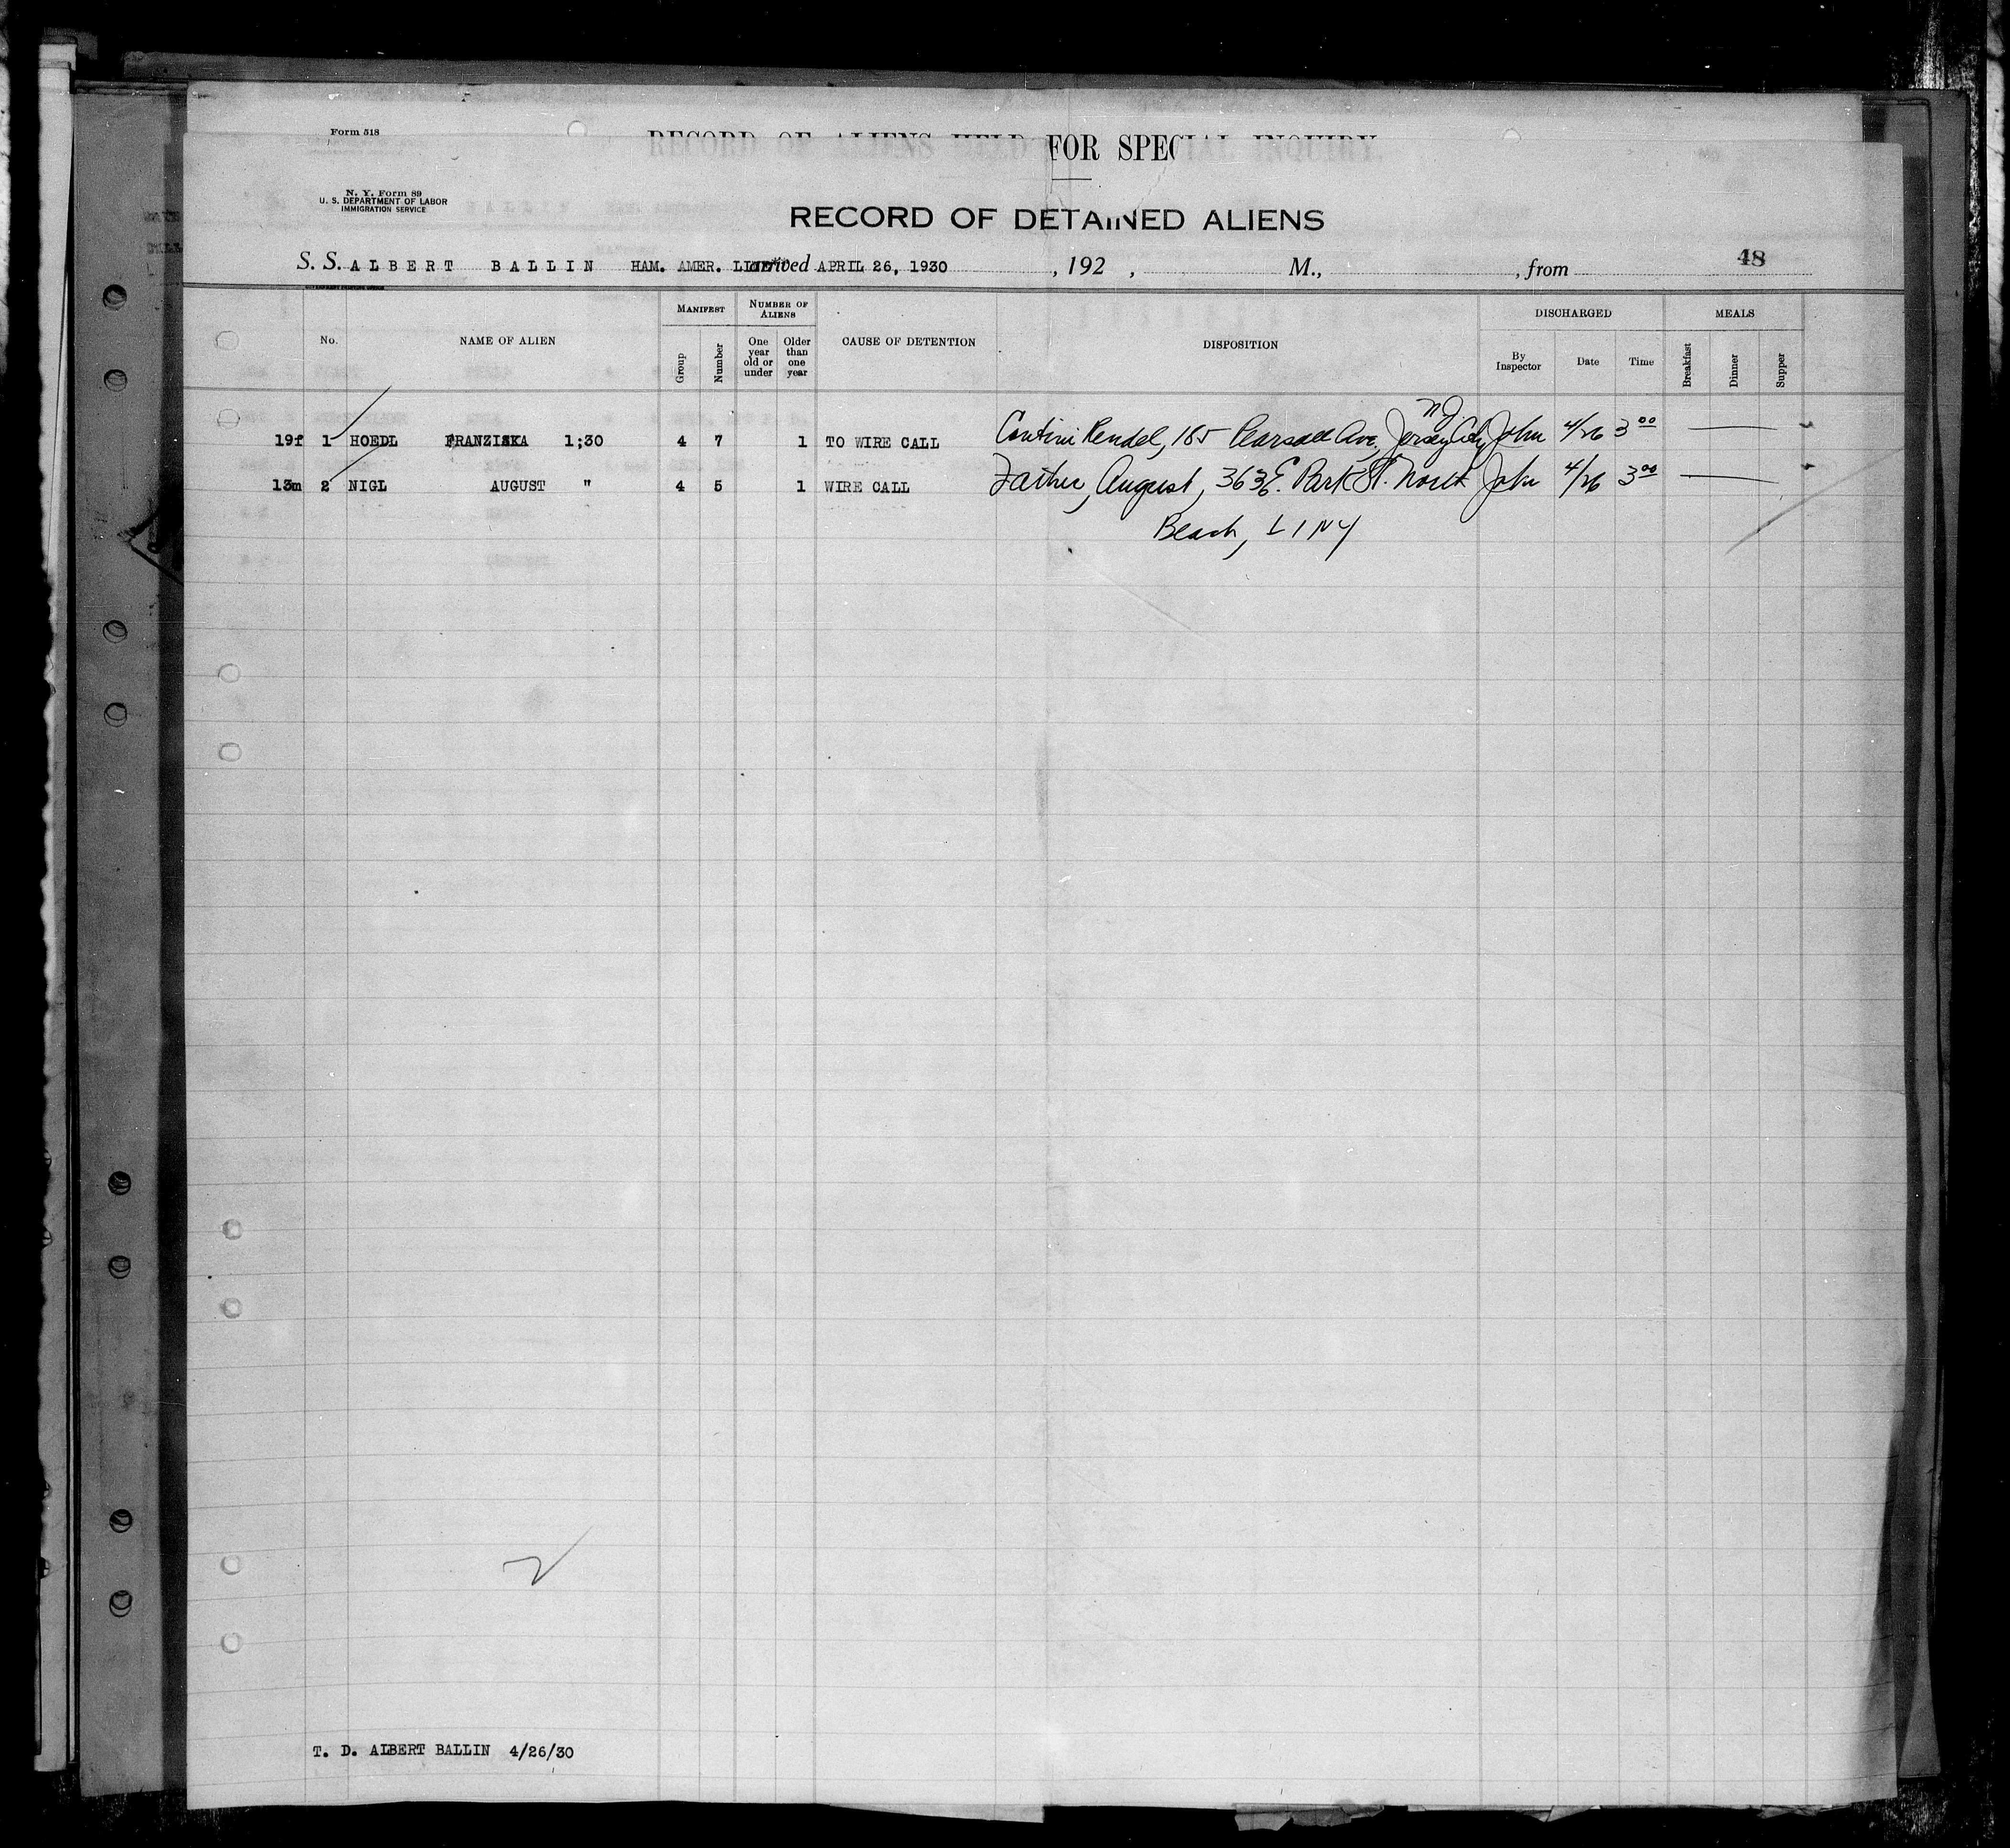 Form 518
RECORD OF ALIENS HELD FOR SPECIAL INQUIRY.
N. Y. Form 89
U. S. DEPARTMENT OF LABOR
IMMIGRATION SERVICE
RECORD OF DETAINED ALIENS
S. S. ALBERT BALLIN HAM. AMER. LINE arrived APRIL 26, 1930 , 192 , M., , from 48
No. NAME OF ALIEN MANIFEST Group Number NUMBER OF ALIENS One year old or under Older than one year CAUSE OF DETENTION DISPOSITION DISCHARGED By Inspector Date Time MEALS Breakfast Dinner Supper
19f 1 HOEDL FRANZISKA 1;30 4 7 1 TO WIRE CALL 185 Pearsall Ave, Jersey City NJ John 4/26 3 00
13m 2 NIGL AUGUST " 4 5 1 WIRE CALL Father, August, 363 E. Park St. North John 4/26 3 00
Beach, L I N Y
2
T. D. ALBERT BALLIN 4/26/30